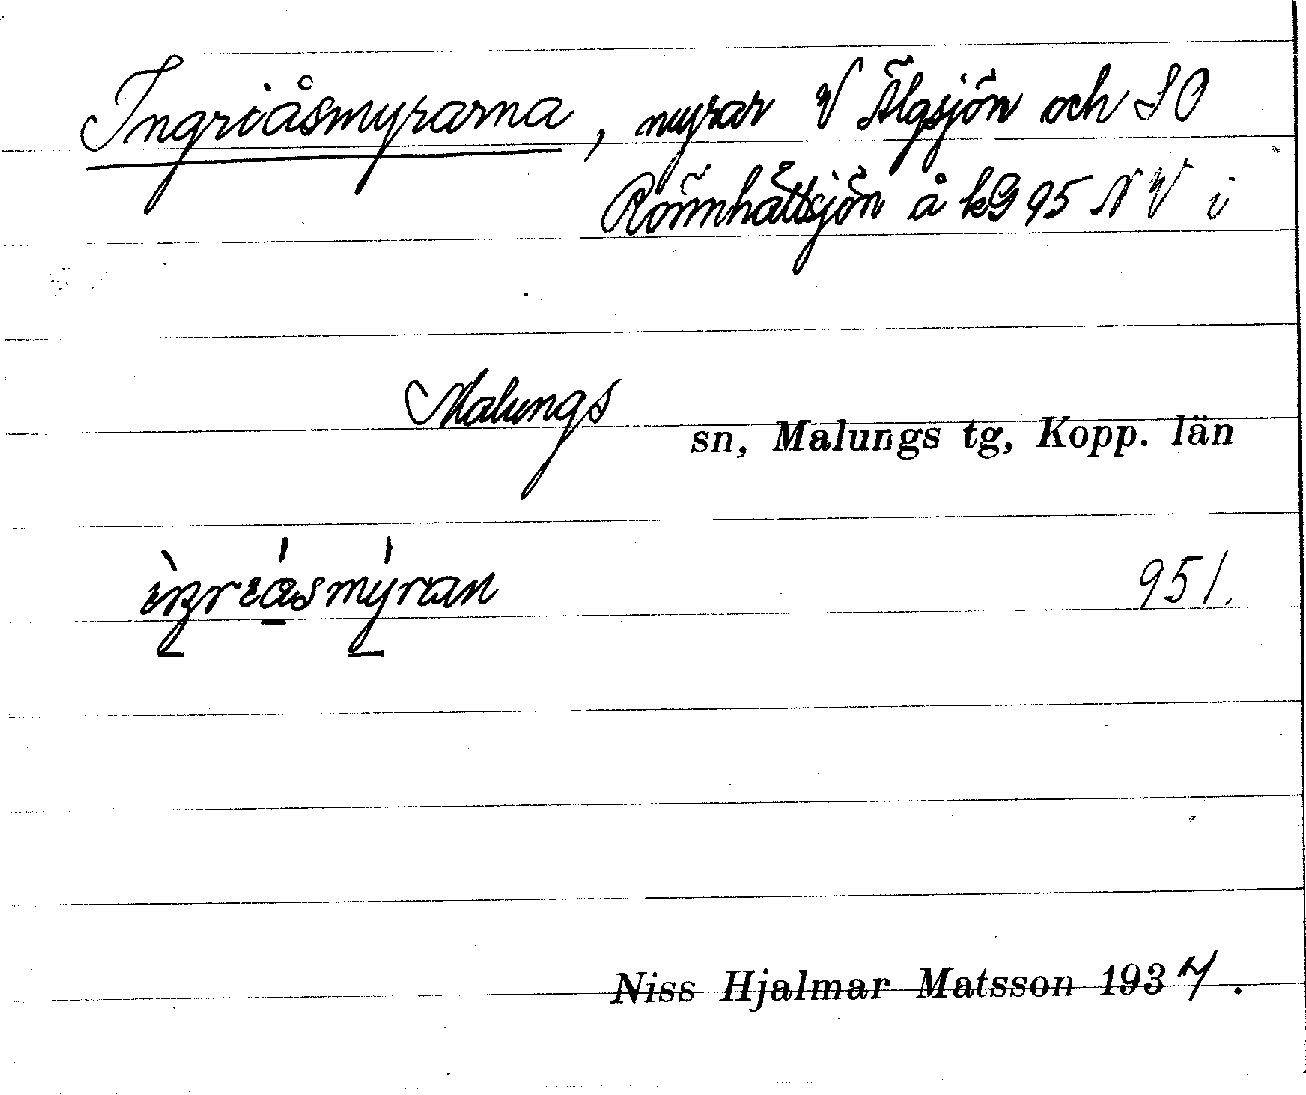 Ingriåsmyrarna, myrar V Älgsjön och SO
Rönnhåttsjön å kG 95 NV i
Malungs sn, Malungs tg, Kopp. län
951.
Niss Hjalmar Matsson 1937.